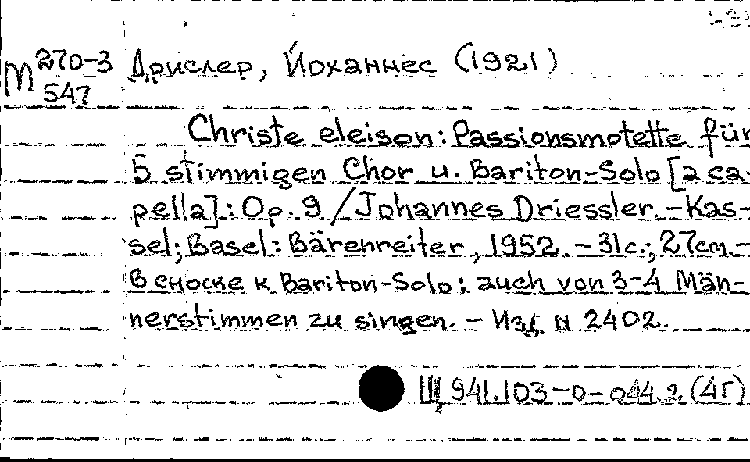 М 270-3
547
Дрислер, Йоханнес (1921)
Christe eleison: Passionsmotette für
5 stimmigen Chor u. Bariton-Solo [a ca-
pella]: Op. 9 / Johannes Driessler. - Kas-
sel; Basel: Bärenreiter, 1952. - 31 c.; 27 cm. -
В сноске к Bariton-Solo: auch von 3-4 Män-
nerstimmen zu singen. - Изд. N 2402.
Щ 941.103-0-044.2 (4Г)